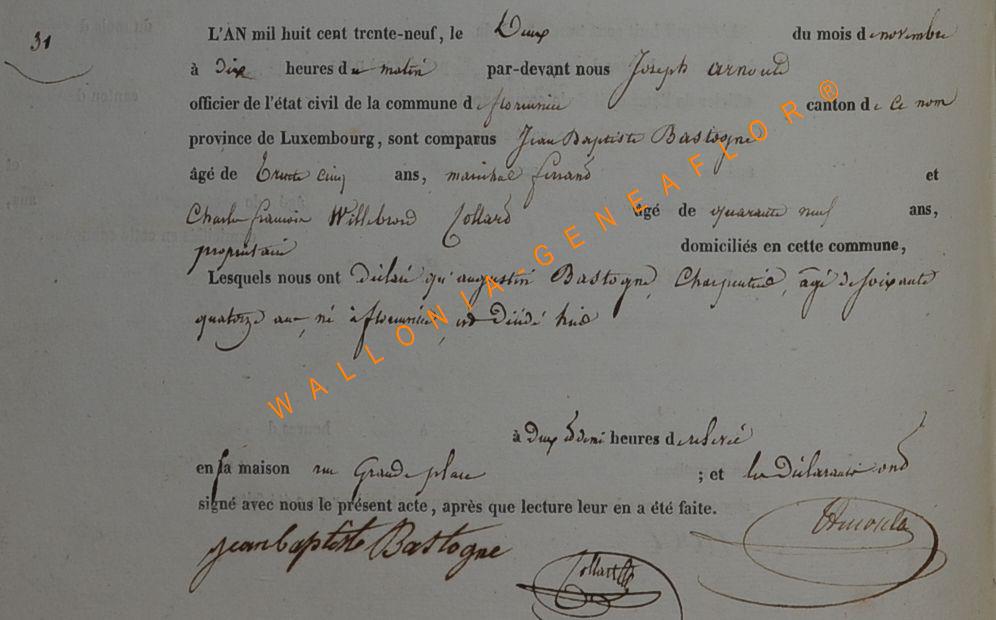 31
L'AN mil huit cent trente-neuf, le Deux du mois de novembre
à dix heures du matin par-devant nous Joseph arnould
officier de l'état civil de la commune de florenville canton de Ce nom
province de Luxembourg, sont comparus Jean Baptiste Bastogne
âgé de trente cinq ans, marechal ferrand et
Charles françois Willebrord Collard âgé de quarante neuf ans,
propriétaire domiciliés en cette commune,
Lesquels nous ont déclaré qu'augustin Bastogne, Charpentier, âgé de soixante
quatorze ans, né à florenville, est décédé hier
à Deux et demi heures de relevée
en sa maison rue Grande place ; et les Déclarants ont
signé avec nous le présent acte, après que lecture leur en a été faite.
jean baptiste Bastogne
Collard
WALLONIA-GENEAFLOR®